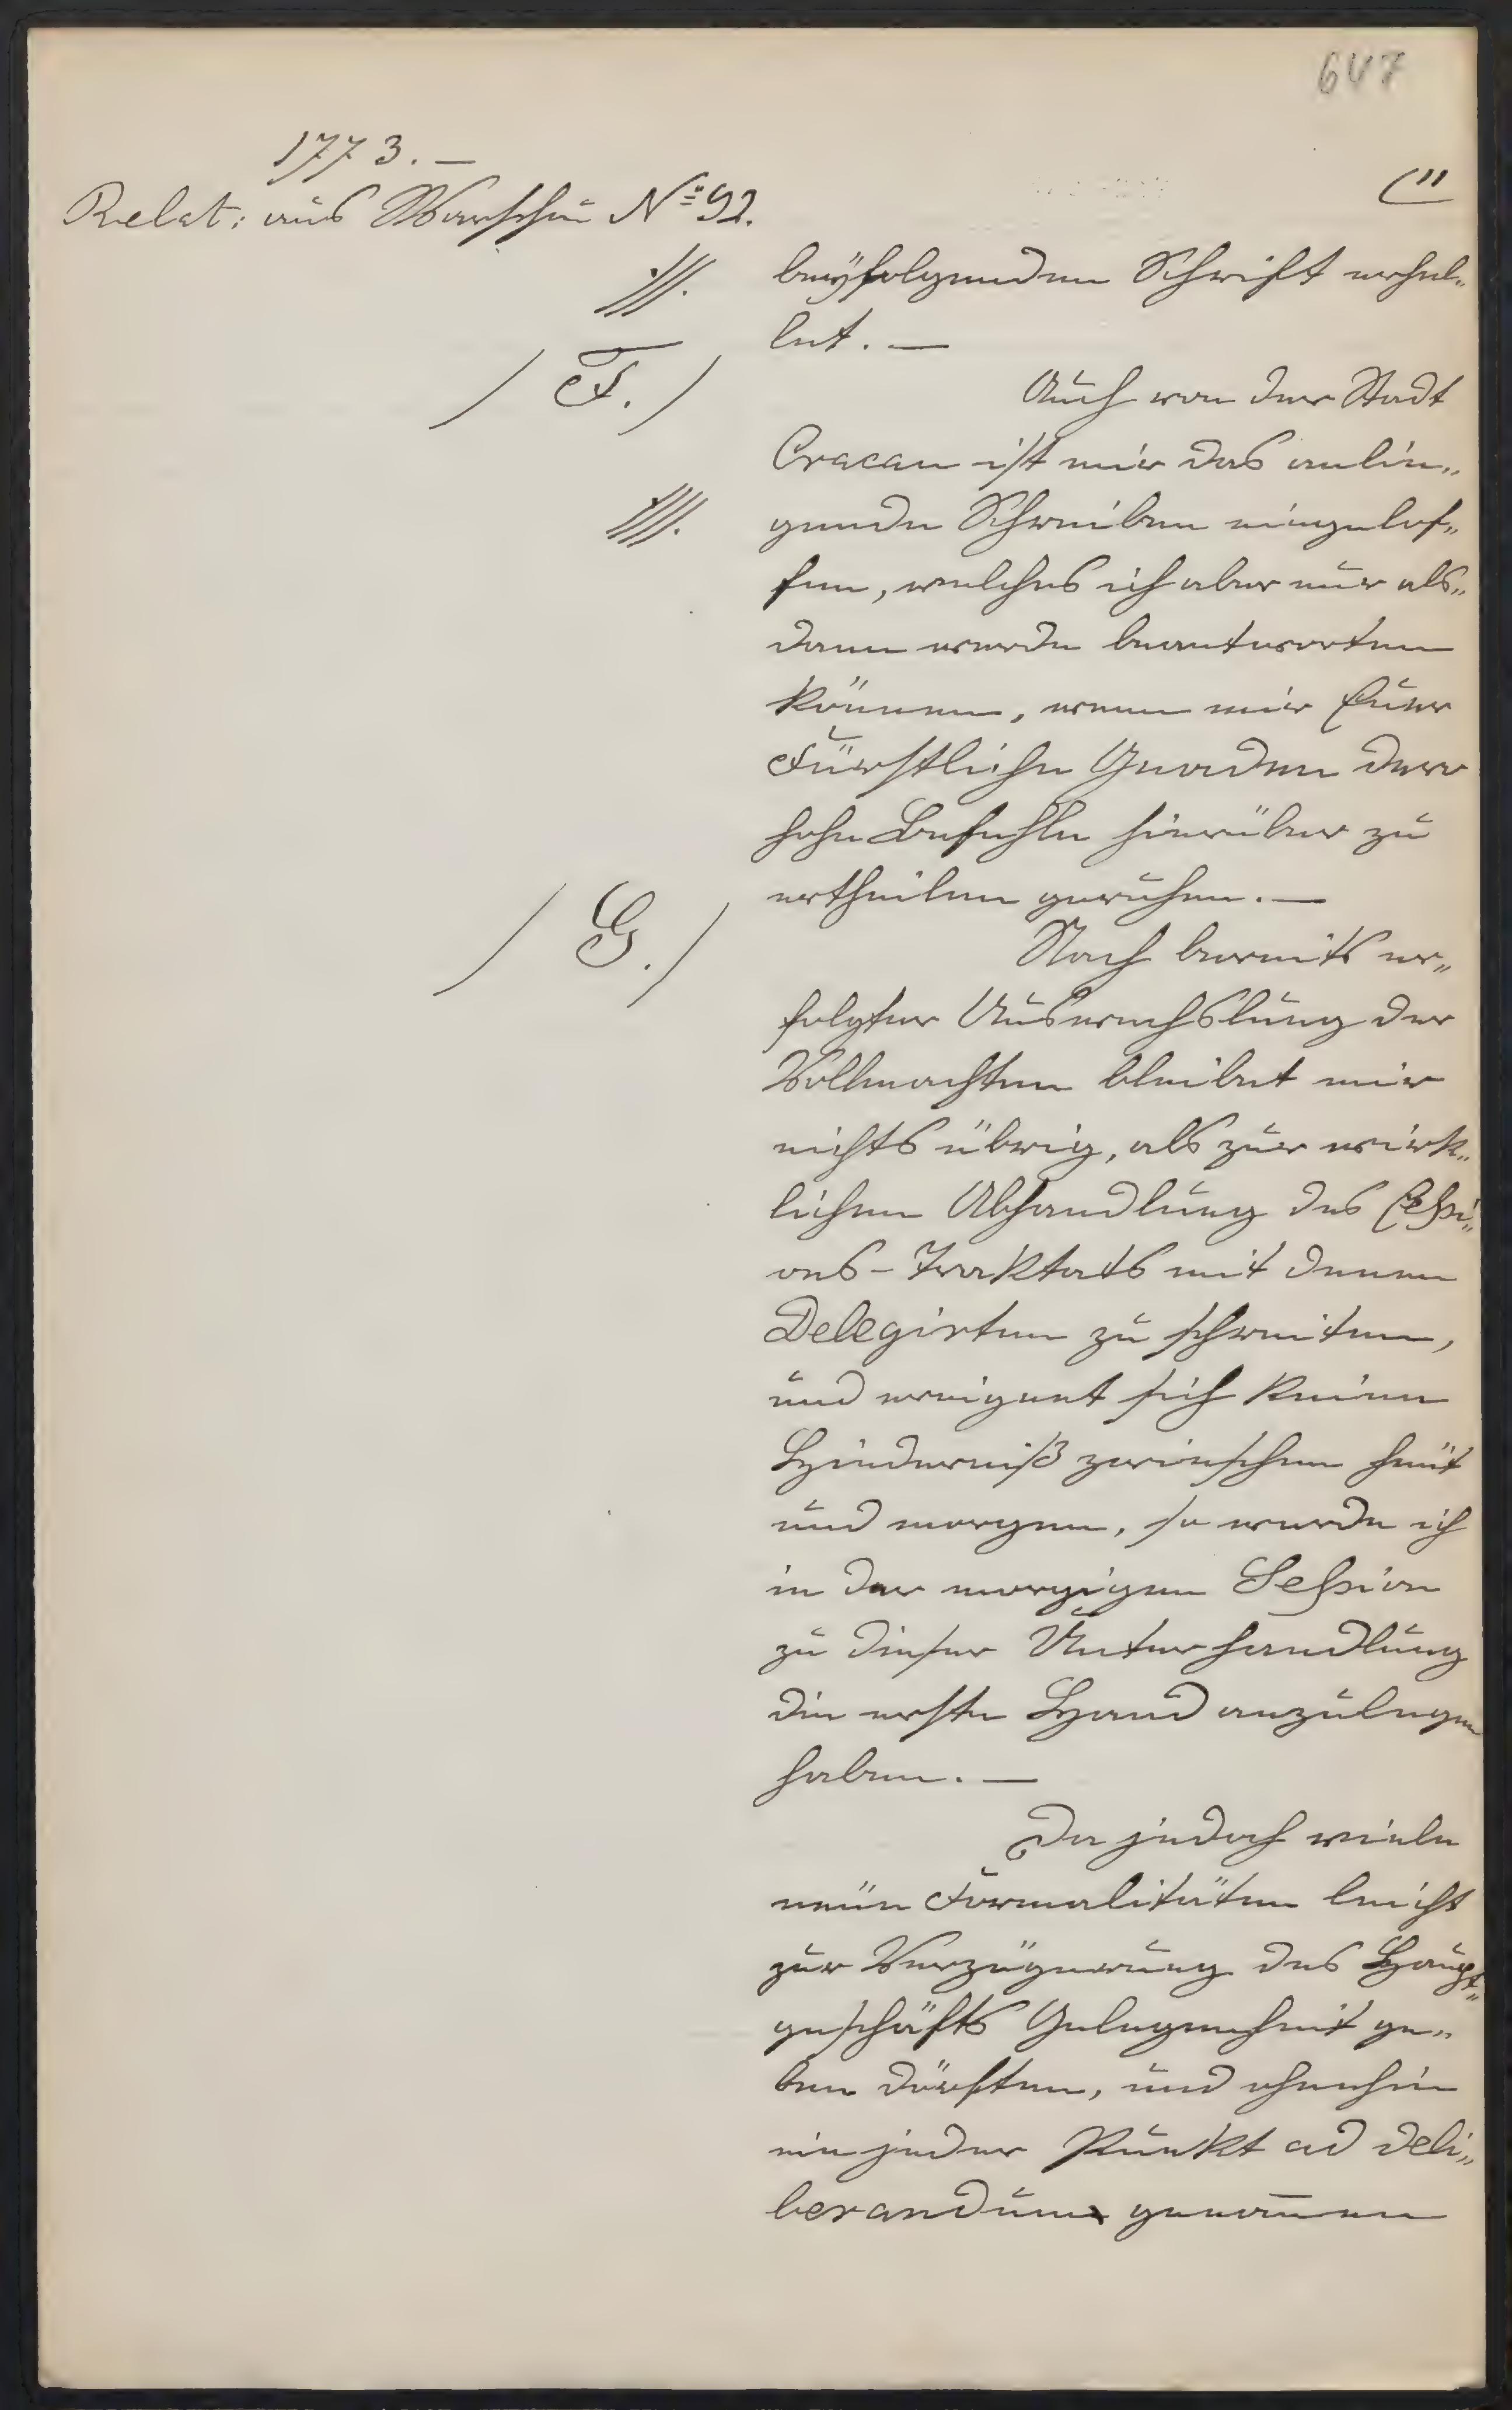 647
1773. —
Relat: aus Warschau No 92.
11
///.
beÿfolgenden Schrift erhel„
let. —
/ F. /
Auch von der Stadt
Cracau ist mir das anlie„
////.
gende Schreiben eingelof„
fen, welches ich aber nur als„
dann werde beantworten
können, wenn mir Euer
Fürstliche Gnaden dero
hohe Befehle hierüber zu
ertheilen geruhen. —
/ G. /
Nach bereits er„
folgter Auswechslung der
Vollmachten bleibet mir
nichts übrig, als zur wirk„
lichen Abhandlung des Cessi„
ons-Traktats mit denen
Delegirten zu schreiten,
und ereignet sich keine
Hinderniß zwieschen heut
und morgen, so werde ich
in der morgigen Session
zu dieser Unterhandlung
die erste Hand anzulegen
haben. —
Da jedoch viele
neüe Formalitäten leicht
zur Verzögerung des Haupt„
geschäfts Gelegenheit ge„
ben dörften, und ohnehin
ein jeder Punkt ad deli„
berandum genom̅en